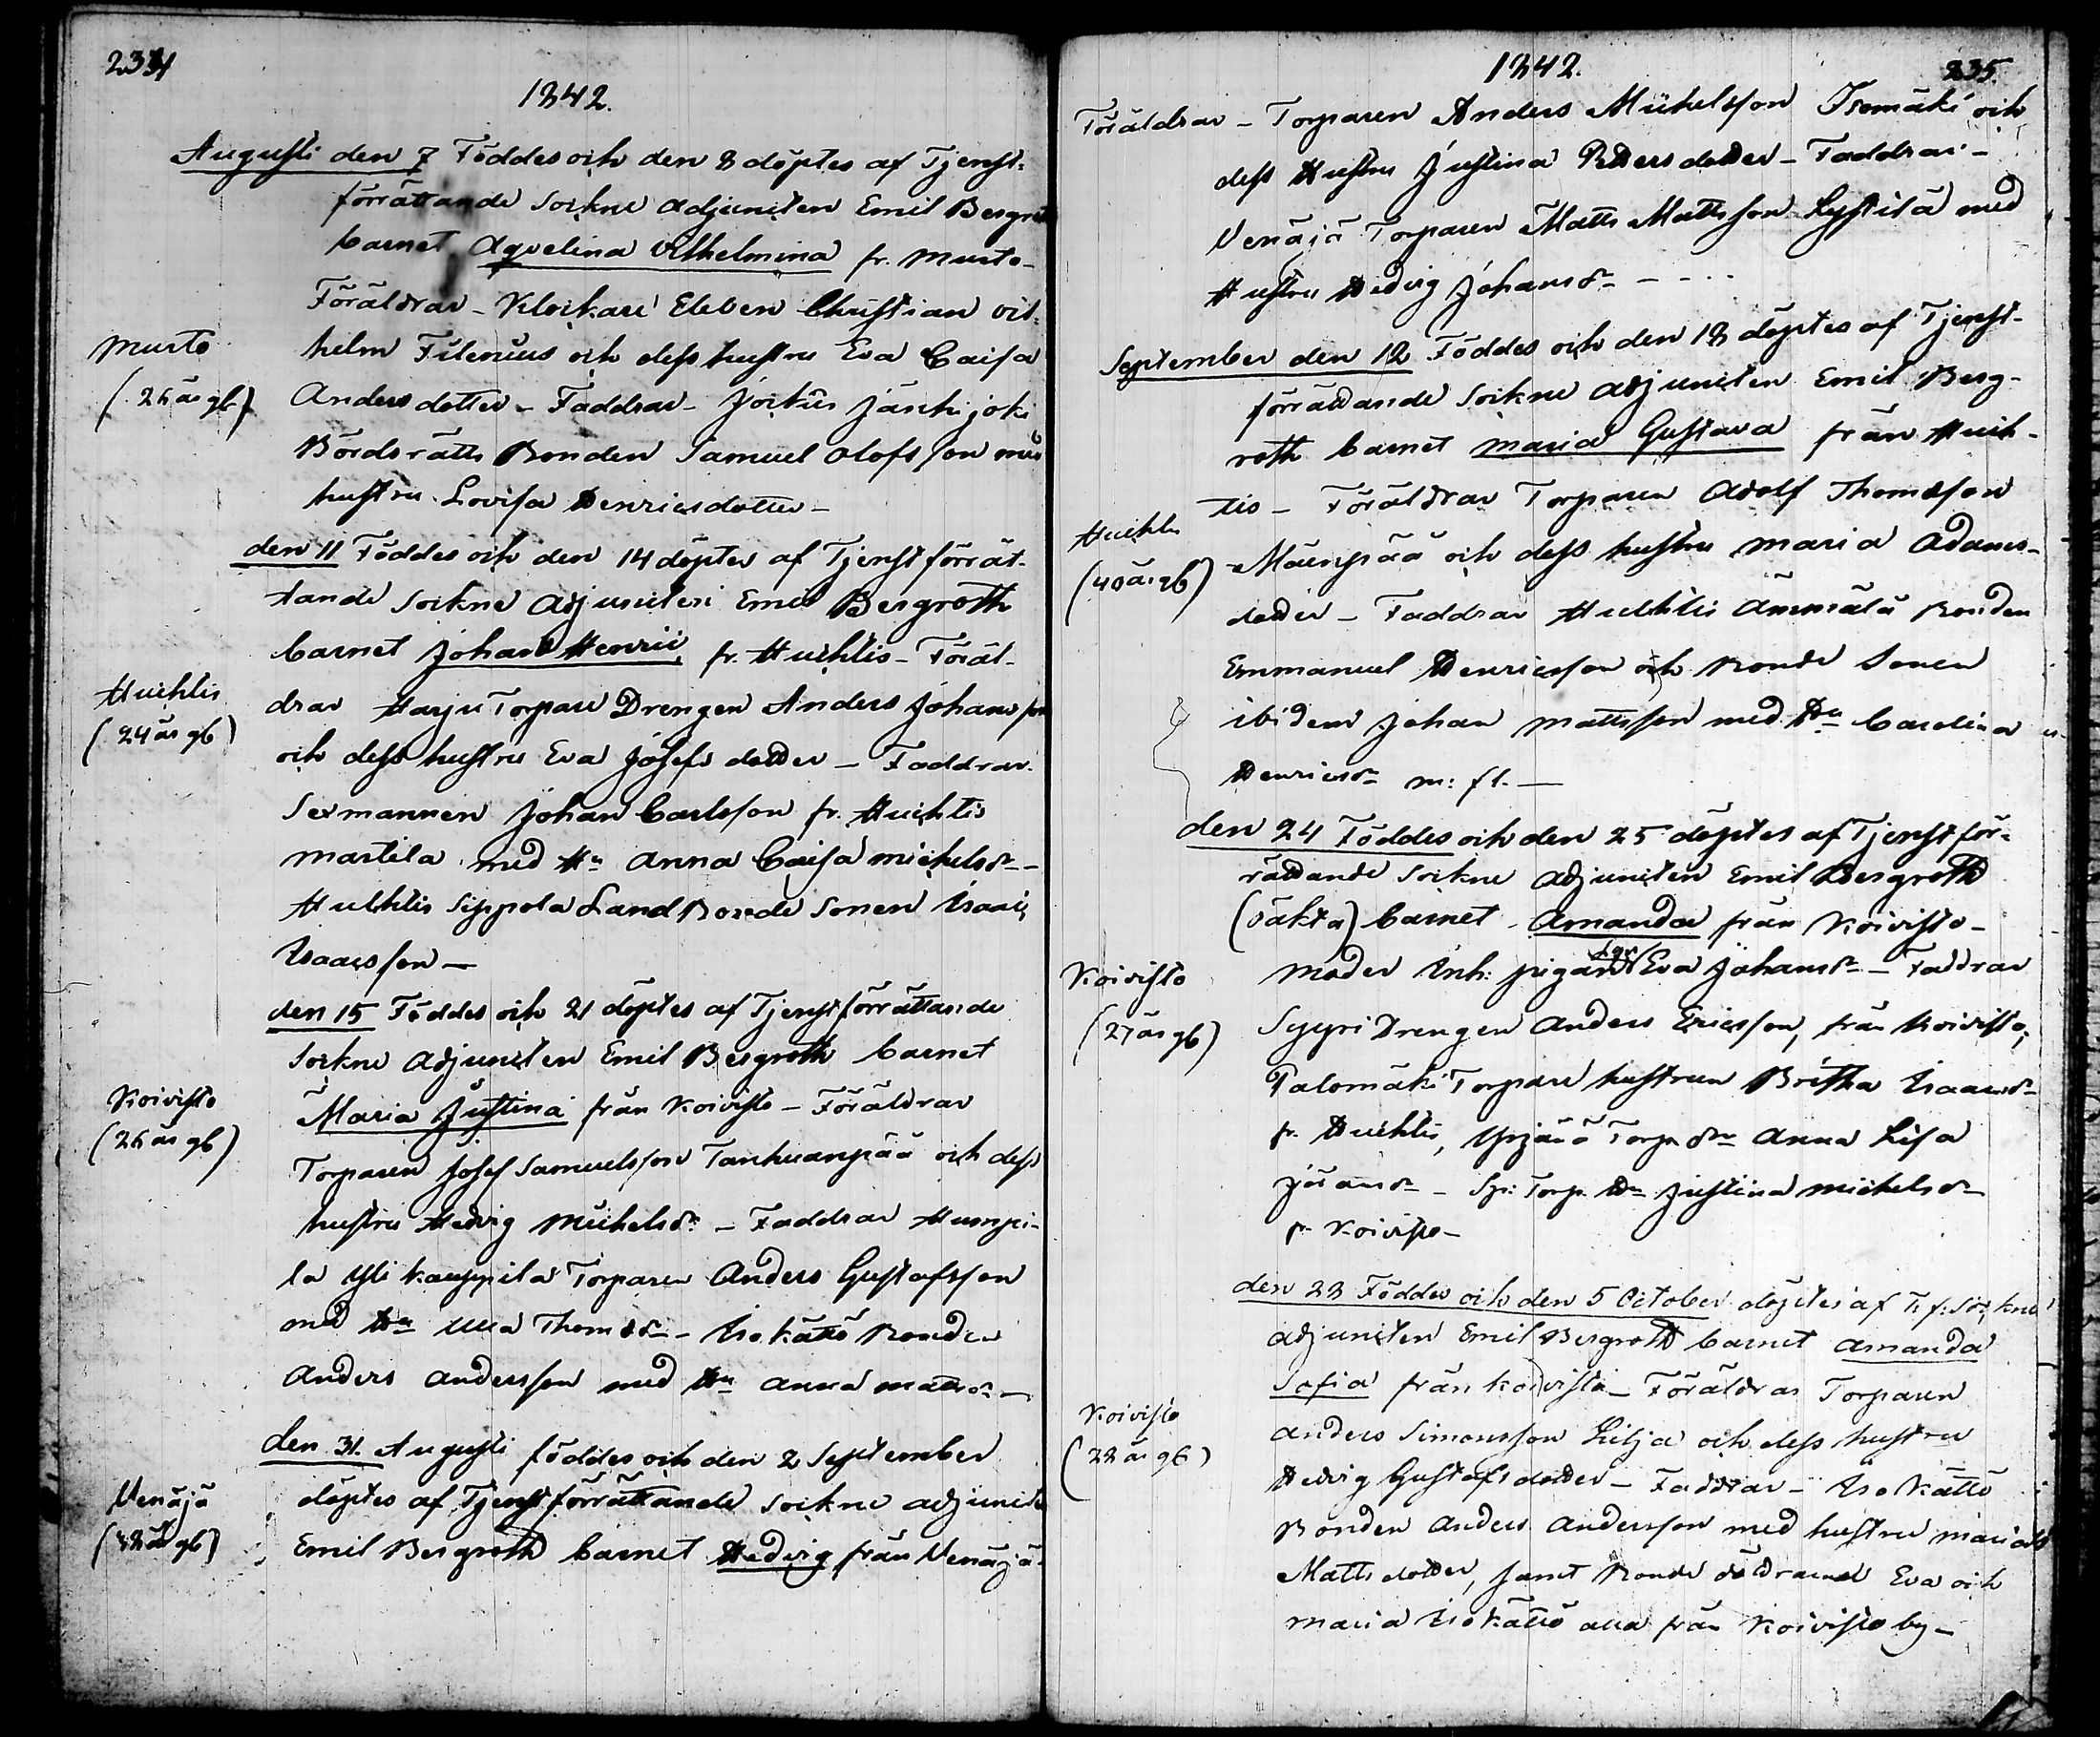 234
1842.
Augusti den 7 Föddes och den 8 döptes af Tjenst-
förrättande Sockne Adjuncten Emil Bergroth
barnet Aqvelina Vilhelmina fr. Murto -
Föräldrar - Klockare Eleven Christian Vil-
helm Filenius och dess hustru Eva Caisa
Murto
(26 år gl.)
Anders dotter - Faddrar - Jockis Jänhijoki
Bördsrätts Bonden Samuel Olofsson med
hustru Lovisa Henricsdotter -
den 11 Föddes och den 14 döptes af Tjenstförrät-
tande Sockne Adjuncten Emil Bergroth
barnet Johan Henric fr. Huchtis - Föräl-
Huchtis
(24 år gl)
drar Harju Torpare Drengen Anders Johansson
och dess hustru Eva Josefs dotter - Faddrar
Sexmannen Johan Carlsson fr. Huchtis
Martila med Hu Anna Caisa Michelsdr -
Huchtis Sippola Land Bonde Sonen Isaac
Isaacsson -
den 15 Föddes och 21 döptes af Tjenstförrättande
Sockne Adjuncten Emil Bergroth barnet
Koivisto
(26 år gl)
Maria Justina från Koivisto - Föräldrar
Torparen Josef Samuelsson Tanhuanpää och dess
hustru Hedvig Michelsdr - Faddrar Humpi-
la Yli Kauppila Torparen Anders Gustafsson
med Hu Ulla Thomasdr - Iso Kättö Bonden
Anders Andersson med Hu Anna Mattsdr -
den 31. Augusti föddes och den 2 September
Venäjä
döptes af Tjenstförrättande Sockne adjuncten
Emil Bergroth barnet Hedvig från Venäjä -
1842.
235
Föräldrar - Torparen Anders Michelsson Isomäki och
dess Hustru Justina Petters dotter - Faddrar -
Venäjä Torparen Matts Mattsson Lystilä med
Hustru Hedvig Johansdr - - - -
September den 12 Föddes och den 18 döptes af Tjenst-
förrättande Sockne adjuncten Emil Berg-
roth barnet Maria Gustava från Huch-
tis - Föräldrar Torparen Adolf Thomasson
Huchtis
(40 år gl)
Mäenpää och dess hustru Maria Adams-
dotter - Faddrar Huchtis Ämmälä Bonden
Emmanuel Henricsson och Bonde Sonen
ibidem Johan Mattsson med Hu Carolina
Henricsdr m: fl. -
den 24 Föddes och den 25 döptes af Tjenstför-
rättande Sockne Adjuncten Emil Bergroth
(oäkta) barnet Amanda från Koivisto -
Koivisto
(27 år gl)
Moder Inh: pigan Eva Johansdr - Faddrar
Syyri Drengen Anders Ericsson, från Koivisto,
Palomäki Torpare hustrun Britha Isaacsdr
fr. Huchtis, Ypjänö Torp. dr Anna Lisa
Johansdr - Sp: Torp. Hu Justina Michelsdr
fr Koivisto -
den 28 Föddes och den 5 October döptes af T: f: Sockne
adjuncten Emil Bergroth barnet Amanda
Sofia från Koivisto - Föräldrar Torparen
Koivisto
Anders Simonsson Lilja och dess hustru
Hedvig Gustafs dotter - Faddrar - Iso Kättö
Bonden Anders Andersson med hustru Maria
Matts dotter, samt Bonde döttrarne Eva och
Maria Iso Kättö alla från Koivisto by -